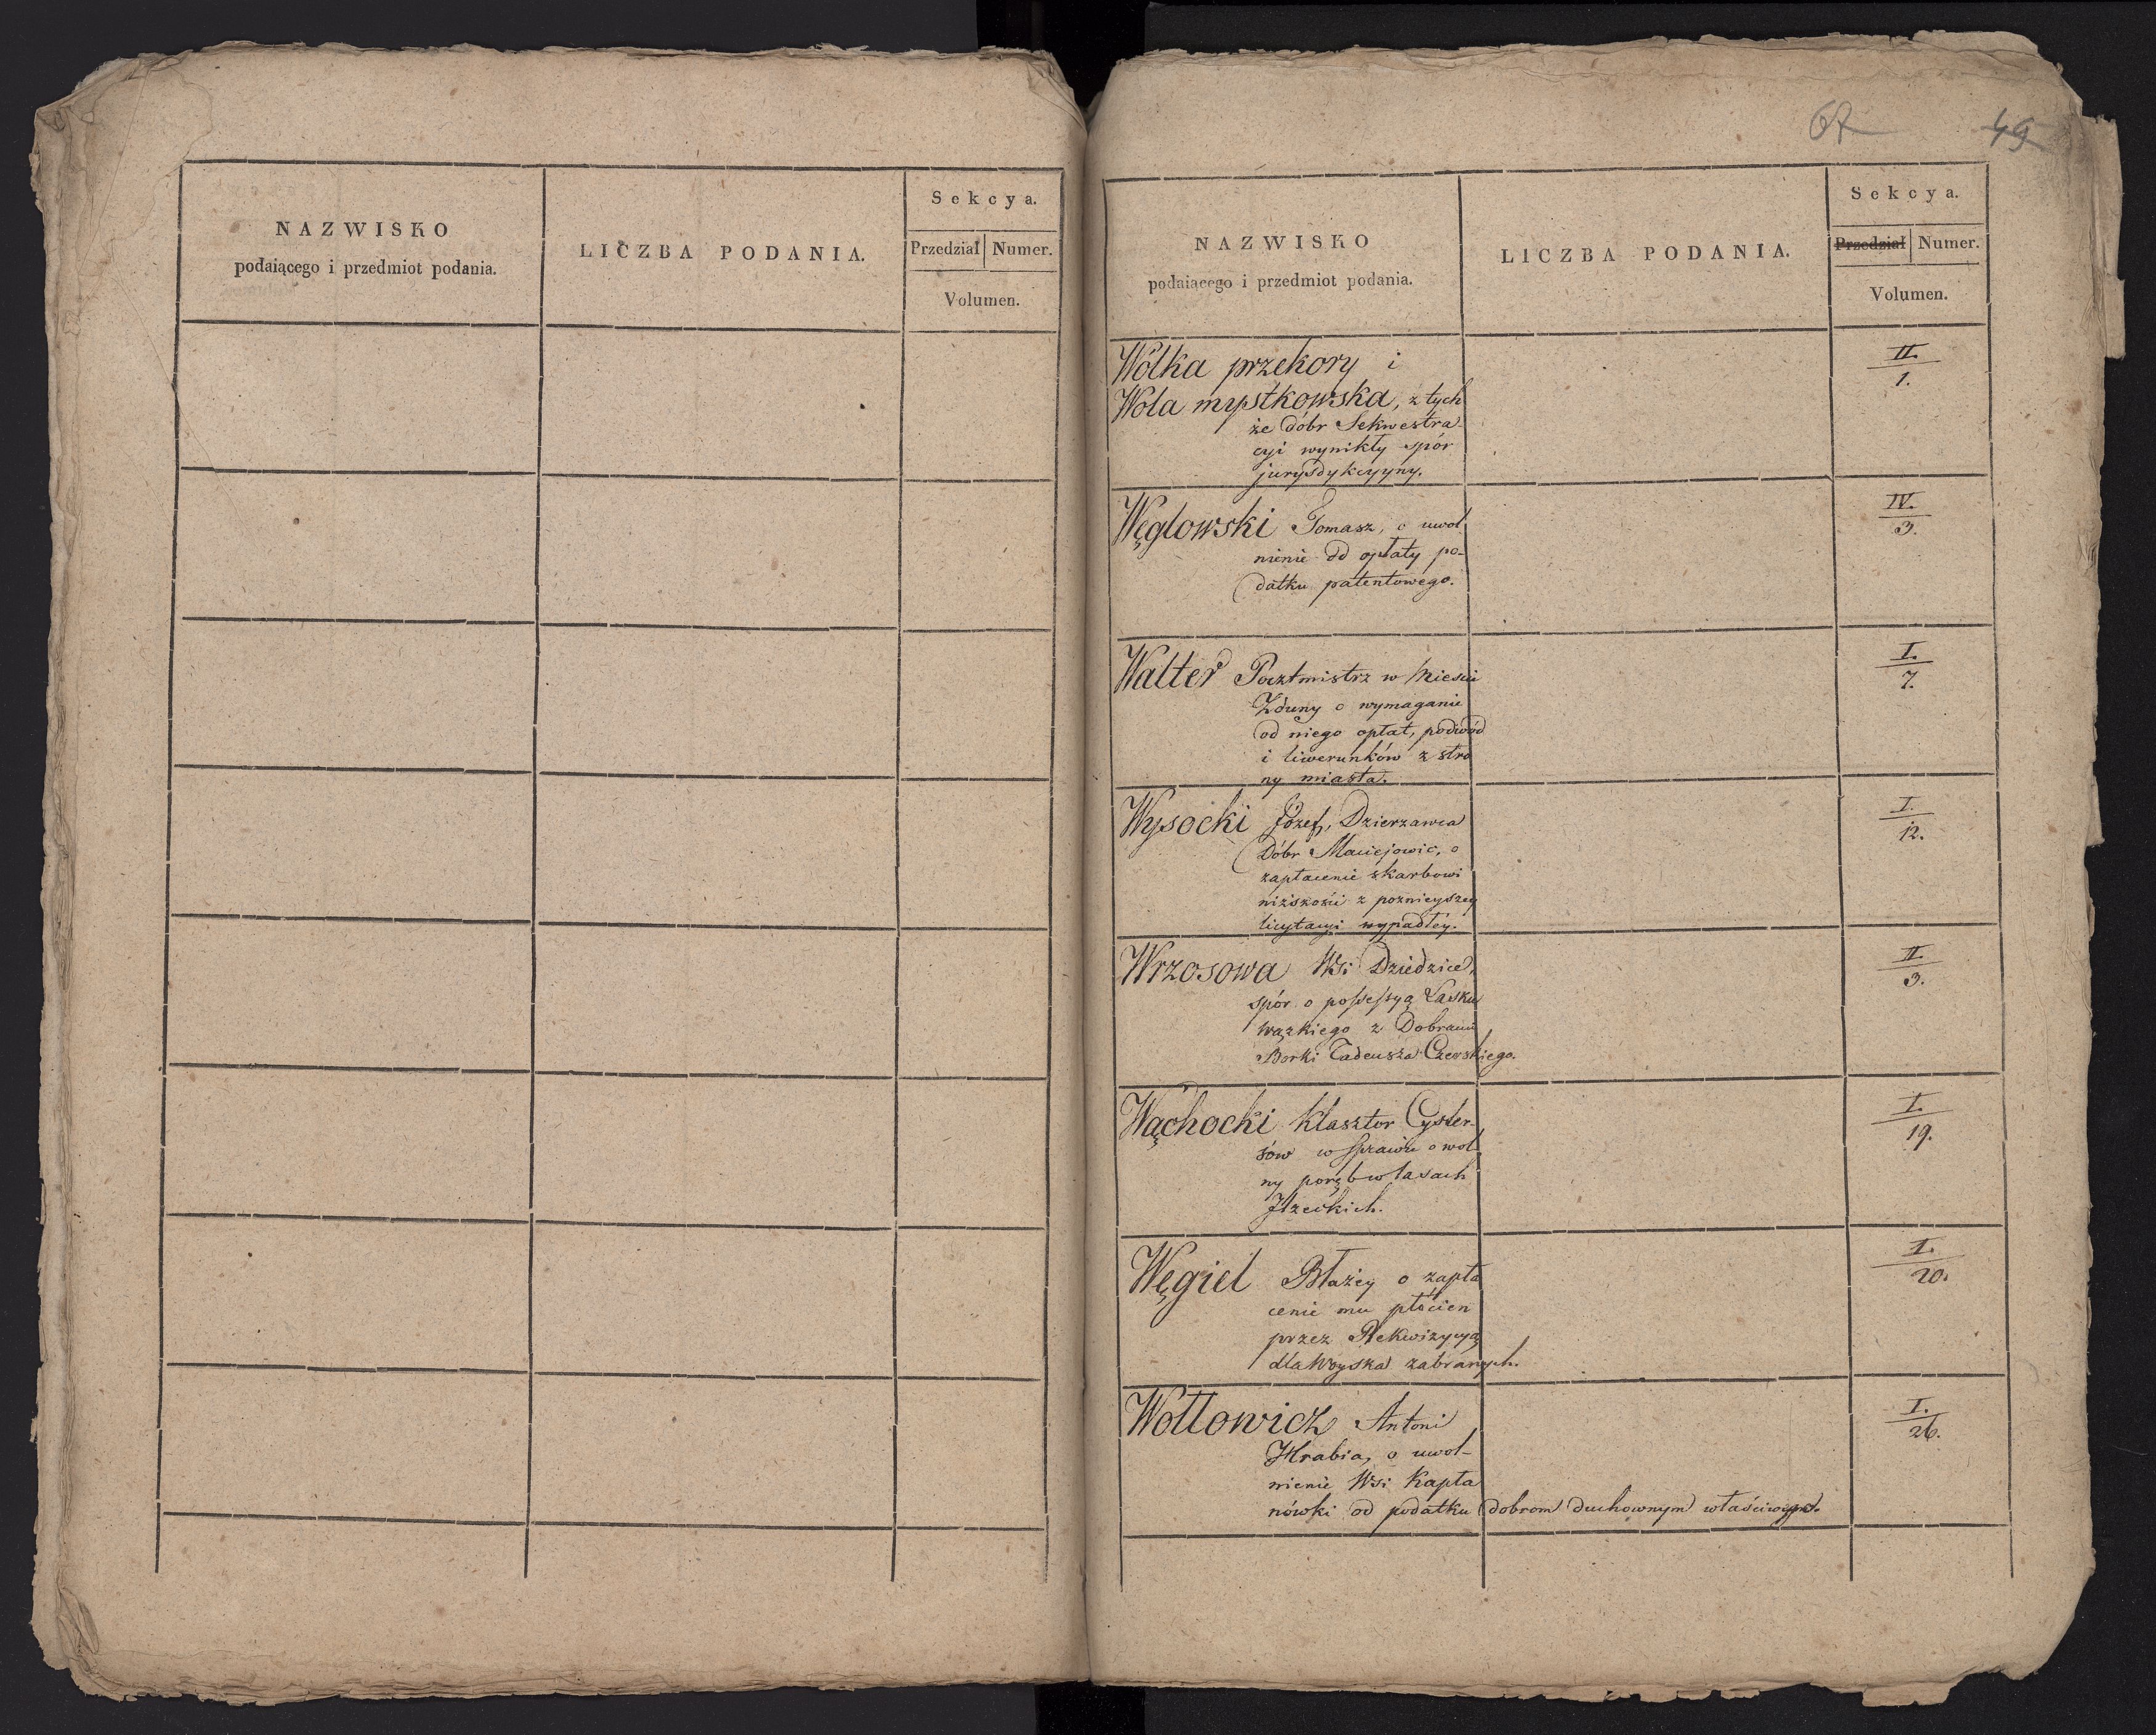 NAZWISKO
podaiącego i przedmiot podania.
LICZBA PODANIA.
Sekcya.
Przedział Numer.
Volumen.
67 49
NAZWISKO
podaiącego i przedmiot podania.
LICZBA PODANIA.
Sekcya.
Przedział Numer.
Volumen.
Wólka przekory i
Wola mystkowska, z tych
że dóbr Sekwestra-
cyi wynikły spór
jurysdykcyyny.
II.
1.
Węglowski Tomasz, o uwol
nienie od opłaty po-
datku patentowego.
IV.
3.
Walter Pocztmistrz w Mieście
Zduny o wymaganie
od niego opłat, podwód
i liwerunków z stro
ny miasta.
I.
7.
Wysocki Józef, Dzierzawca
Dóbr Maciejowic, o
zapłacenie skarbowi
niższości z poznieyszey
licytacyi wypadłéy.
I.
12.
Wrzosowa Wsi Dziedzice,
spór o possessyą Lasku
wązkiego z Dobrami
Borki Tadeusza Czerskiego.
II.
3.
Wąchocki Klasztor Cyster-
sów w sprawie o wol
ny porąb w lasach
Iłzeckich.
I.
19.
Węgiel Błażey o zapła
cenie mu płócien
przez Rekwizycyą
dla Woyska zabranych.
I.
20.
Wołłowicz Antoni
Hrabia, o uwol-
nienie Wsi Kapła
nówki od podatku dobrom duchownym właściwego.
I.
26.